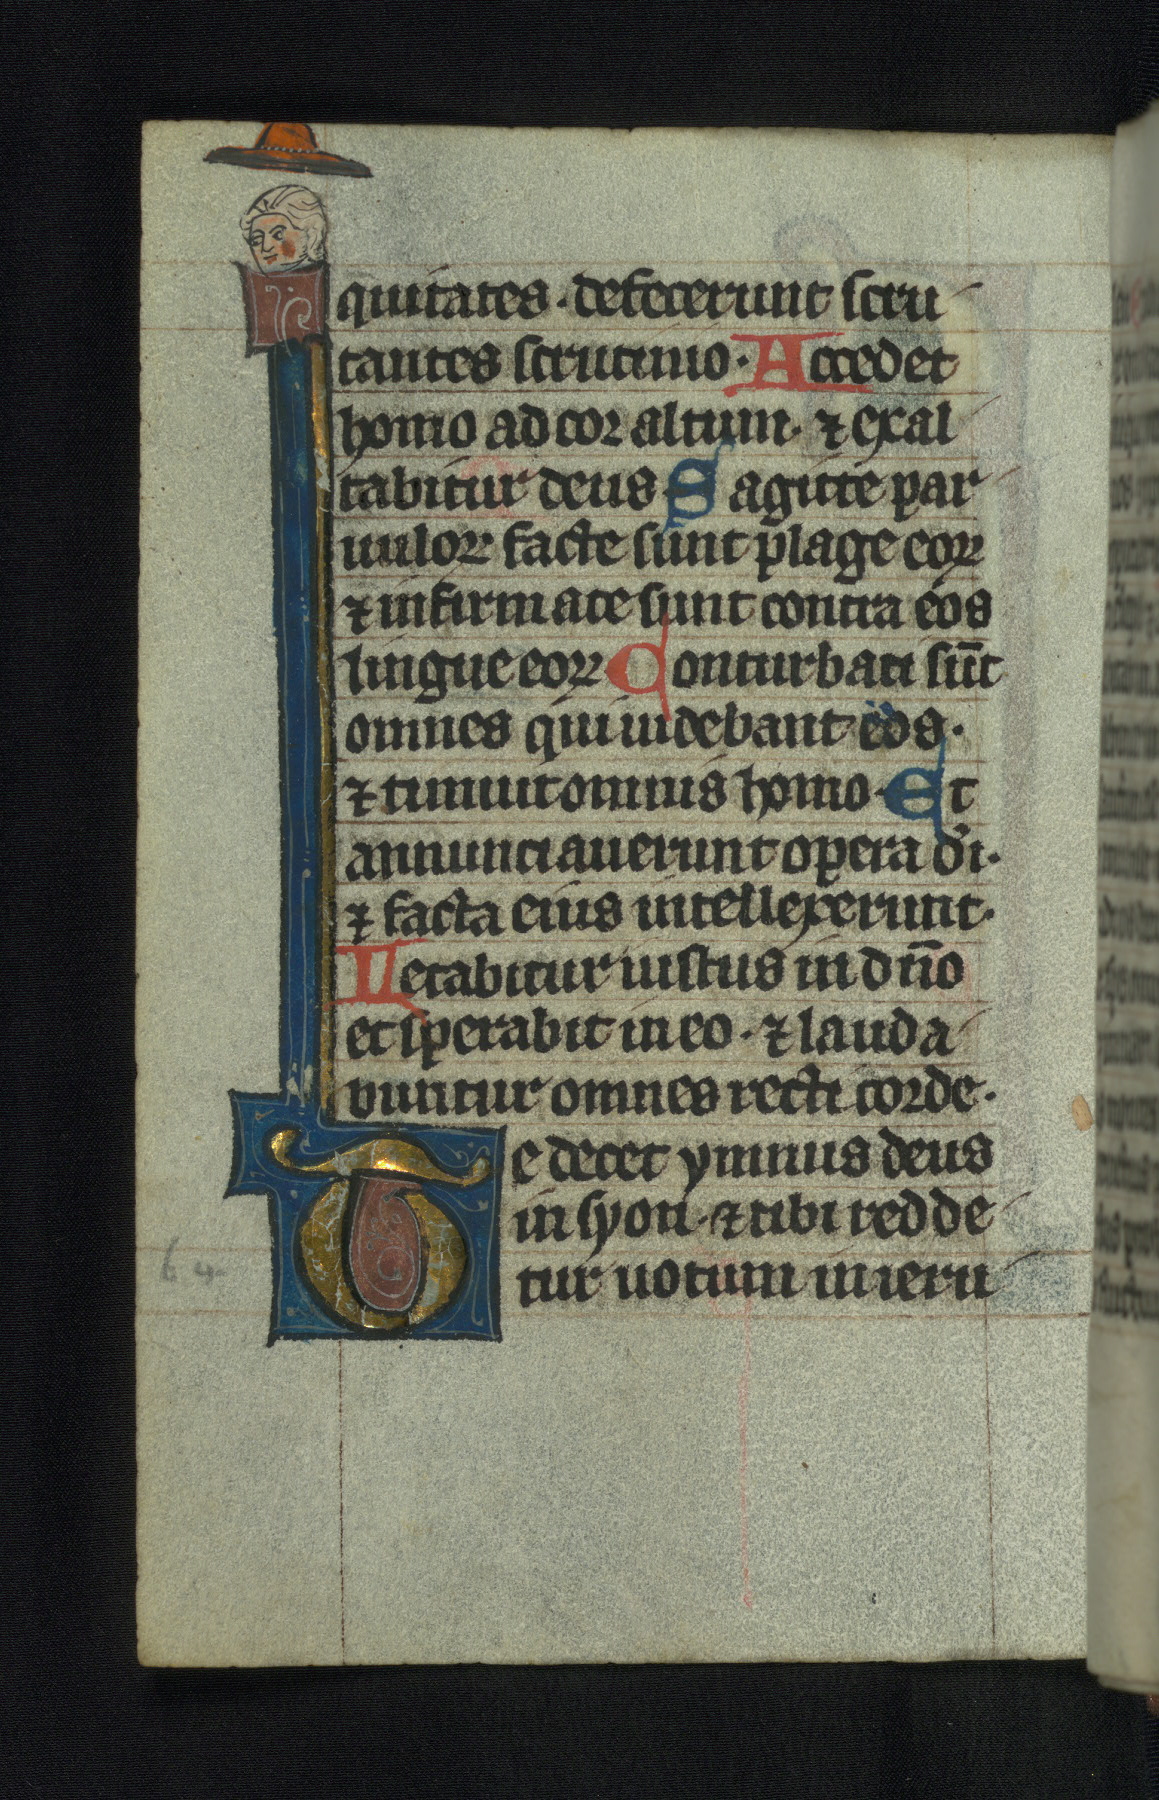 quitates. defecerunt scru
tantes scrutinio. Accedet
homo ad cor altum. ⁊ exal
tabitur deus Sagitte par
uuloꝝ facte sunt plage eoꝝ
⁊ infirmate sunt contra eos
lingue eoꝝ Conturbati sūt
omnes qui uidebant eos.
⁊ timuit omnis homo. Et
annunciauerunt opera d'i.
⁊ facta eius intellexerunt.
Letabitur iustus in dn̄o
et sperabit in eo. ⁊ lauda
buntur omnes recti corde.
Te decet ymnus deus
in syon. ⁊ tibi redde
tur uotum in ieru
64.